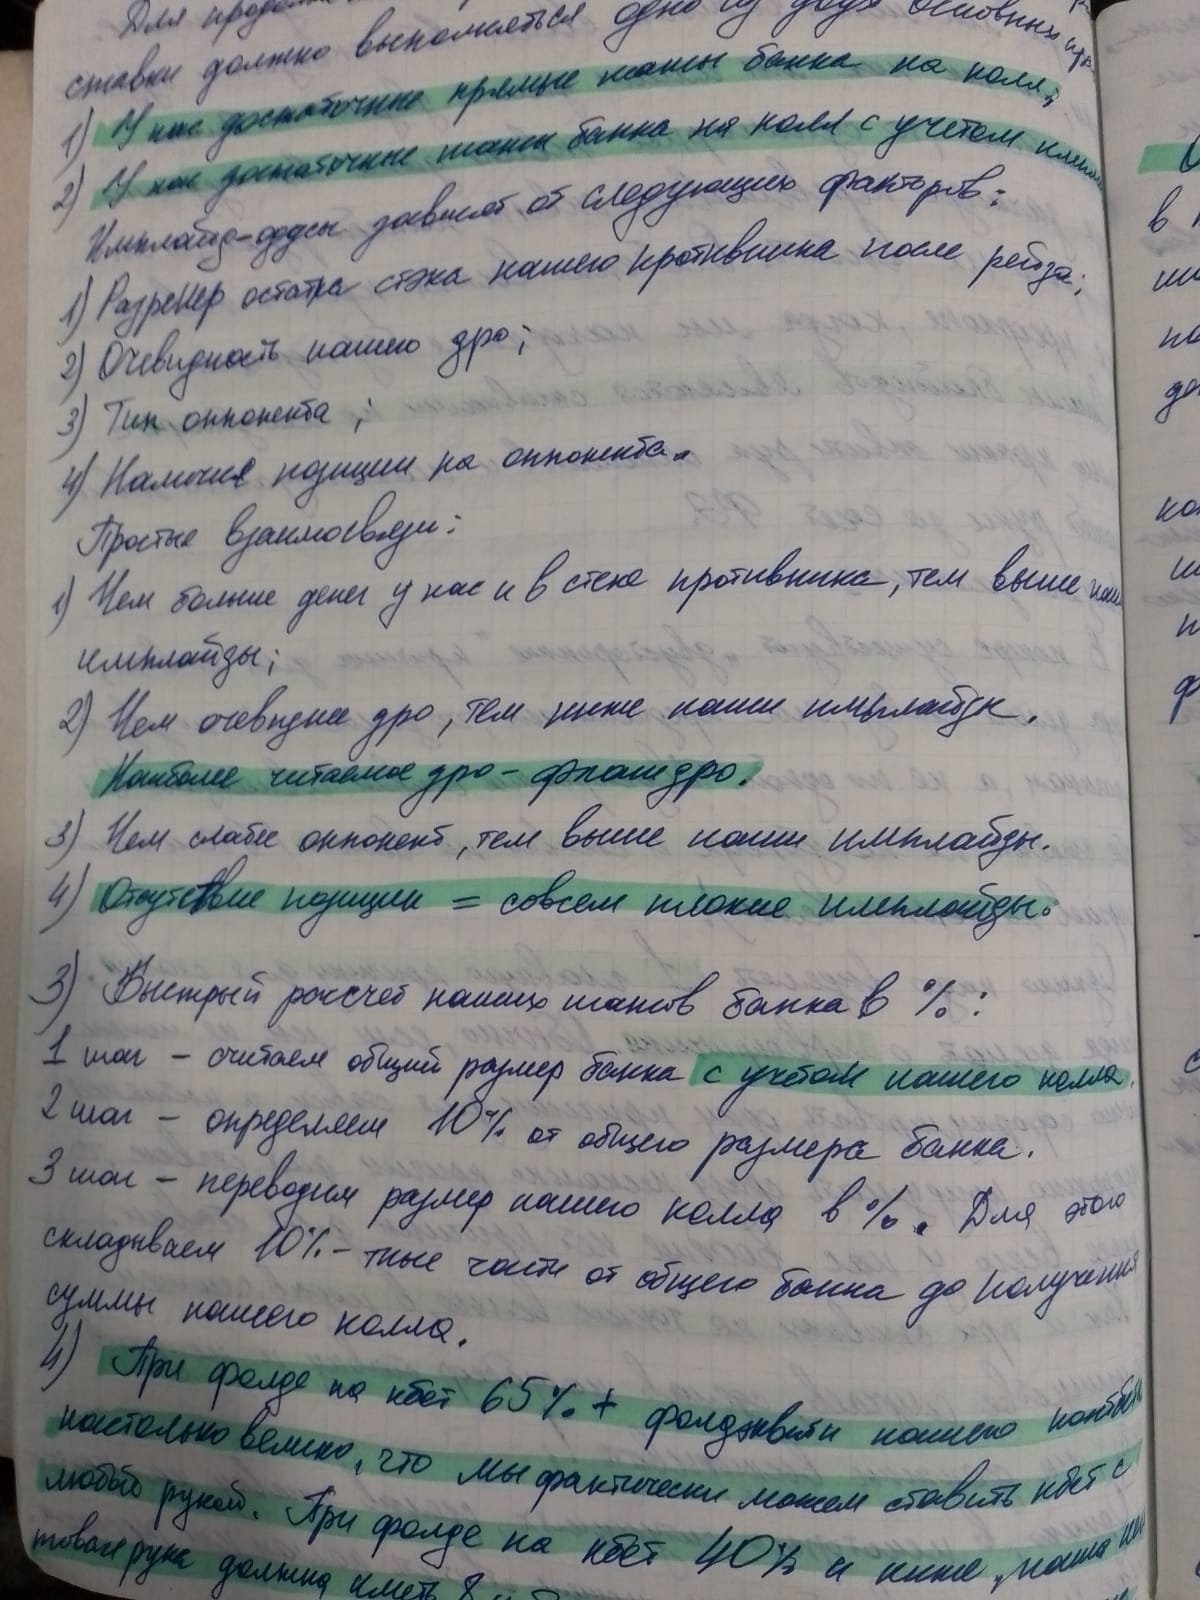 Для
ставки должно выполняться одно из двух основных
1) У нас достаточные прямые шансы банка на колл;
2) У нас достаточные шансы банка на колл с учетом
Имплайд-оддсы зависят от следующих факторов:
1) Размер остатка стэка нашего противника после рейза;
2) Очевидность нашего дро;
3) Тип оппонента;
4) Наличие позиции на оппонента.
Простые взаимосвязи:
1) Чем больше денег у нас и в стеке противника, тем выше наши
имплайды;
2) Чем очевиднее дро, тем ниже наши имплайды.
Наиболее читаемое дро - флашдро.
3) Чем слабее оппонент, тем выше наши имплайды.
4) Отсутствие позиции = совсем плохие имплайды.
3) Быстрый рассчет наших шансов банка в %:
1 шаг - считаем общий размер банка с учётом нашего колла.
2 шаг - определяем 10% от общего размера банка.
3 шаг - переводим размер нашего колла в %. Для этого
складываем 10%-тные части от общего банка до получения
суммы нашего колла.
4) При фолде на кбет 65% + фолдэквити нашего контбета
настолько велико, что мы фактически можем ставить кбет с
любой рукой. При фолде на кбет 40% и ниже, наша
товая рука должна иметь 8